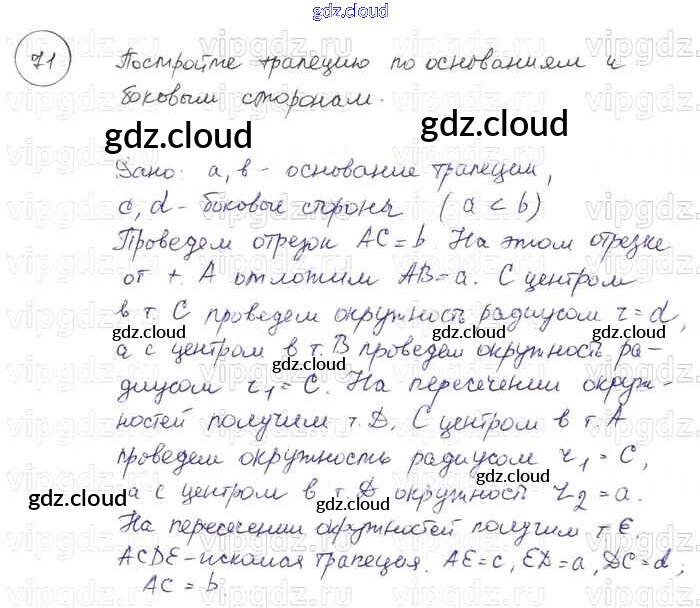 gdz.cloud
71 Постройте трапецию по основаниям и
боковым сторонам.
gdz.cloud gdz.cloud
Дано: a, b - основание трапеции,
c, d - боковые стороны (a < b)
Проведем отрезок AC = b. На этом отрезке
от т. A отложим AB = a. С центром
в т. C проведем окружность радиусом r = d,
gdz.cloud gdz.cloud gdz.cloud
а с центром в т. B проведем окружность ра-
диусом r₁ = C. На пересечении окруж-
ностей получим т. D. С центром в т. A
проведем окружность радиусом r₁ = C,
gdz.cloud gdz.cloud
а с центром в т. D окружность r₂ = a.
На пересечении окружностей получим т. E.
ACDE - искомая трапеция. AE = c, ED = a, DC = d;
AC = b.
gdz.cloud gdz.cloud